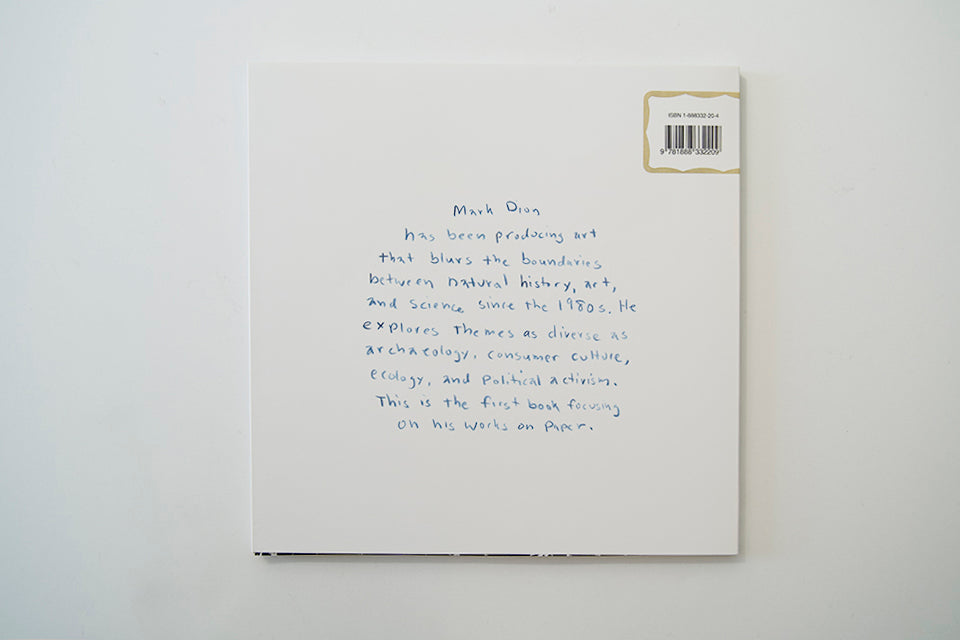 ISBN 1-888332-20-4
9 781888 332209
Mark Dion
has been producing art
that blurs the boundaries
between natural history, art,
and science since the 1980s. He
explores themes as diverse as
archaeology, consumer culture,
ecology, and political activism.
This is the first book focusing
on his works on paper.